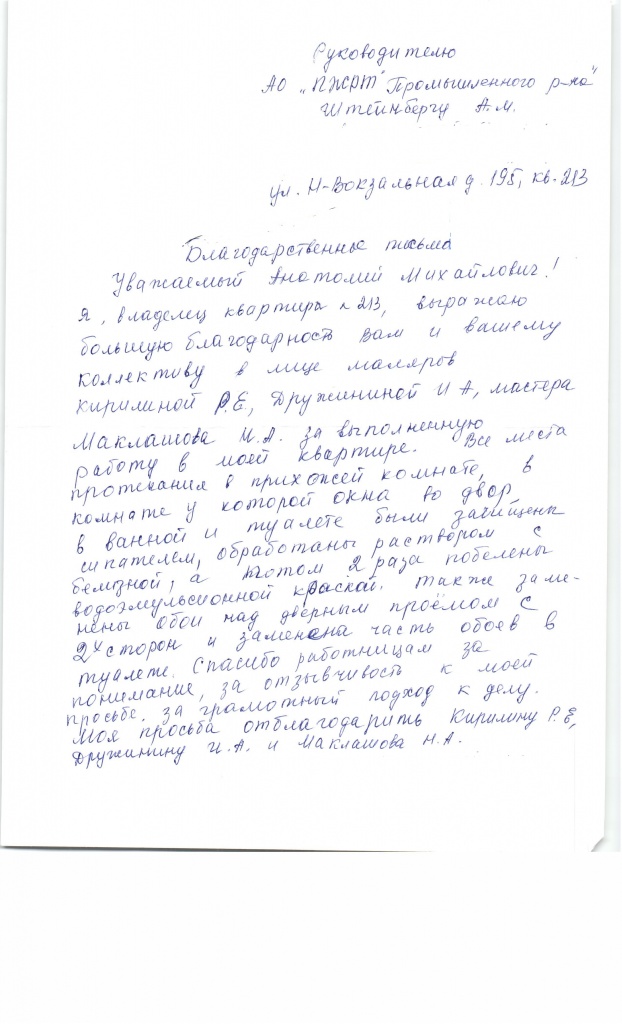 Руководителю
АО „ПЖРТ Промышленного р-на"
Штейнбергу А.М.
ул. Н-Вокзальная д. 195, кв. 213
Благодарственные письма
Уважаемый Анатолий Михайлович!
Я, владелец квартиры № 213, выражаю
большую благодарность Вам и вашему
коллективу в лице маляров
Кирилиной Р.Е., Дружининой И А, мастера
Маклашова Н.А. за выполненную
работу в моей квартире. Все места
протекания в прихожей комнате, в
комнате у которой окна во двор
в ванной и туалете были зачищены
шпателем, обработаны раствором с
белизной, а потом 2 раза побелены
водоэмульсионной краской. также заме-
нены обои над дверным проёмом с
2х сторон и заменена часть обоев в
туалете. Спасибо работницам за
понимание, за отзывчивость к моей
просьбе. за грамотный подход к делу.
Моя просьба отблагодарить Кирилину Р.Е,
Дружинину И.А. и Маклашова Н.А.